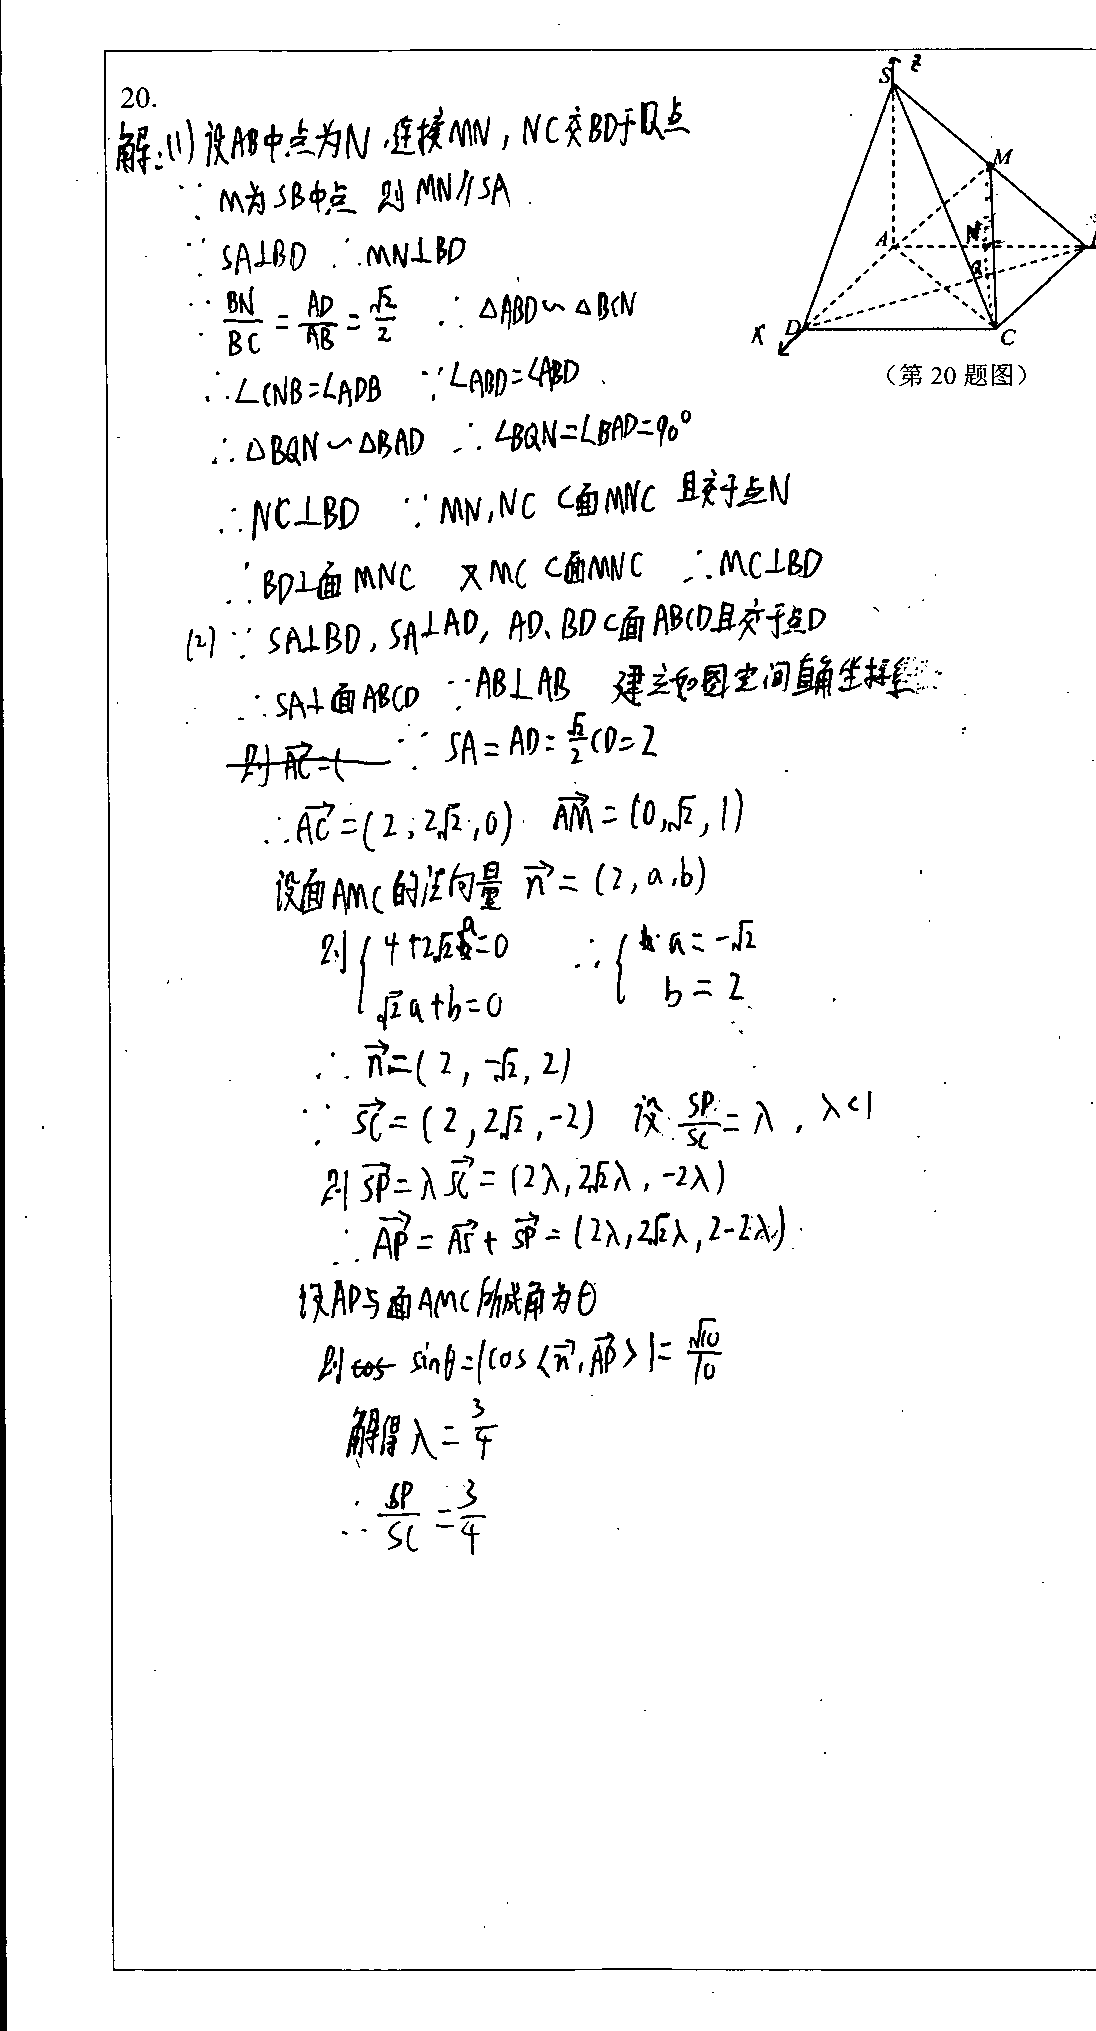 20.
解:(1)设AB中点为N,连接MN,NC交BD于Q点
∵M为SB中点 则MN∥SA
∵SA⊥BD ∴MN⊥BD
∵BN/BC=AD/AB=√2/2 ∴△ABD∽△BCN
∴∠CNB=∠ADB ∵∠ABD=∠ABD
∴△BQN∽△BAD ∴∠BQN=∠BAD=90°
∴NC⊥BD ∵MN,NC⊂面MNC 且交于点N
∴BD⊥面MNC 又MC⊂面MNC ∴MC⊥BD
(2)∵SA⊥BD,SA⊥AD,AD、BD⊂面ABCD且交于点D
∴SA⊥面ABCD ∵AB⊥AB 建立如图空间直角坐标系
则AC→=( ∵SA=AD=√2/2CD=2
∴AC→=(2,2√2,0) AM→=(0,√2,1)
设面AMC的法向量n→=(2,a,b)
则{4+2√2a=0 ∴{a=-√2
√2a+b=0 b=2
∴n→=(2,-√2,2)
∵SC→=(2,2√2,-2) 设SP/SC=λ,λ<1
则SP→=λSC→=(2λ,2√2λ,-2λ)
∴AP→=AS→+SP→=(2λ,2√2λ,2-2λ)
设AP与面AMC所成角为θ
则cos sinθ=|cos<n→,AP→>|=√10/10
解得λ=3/4
∴SP/SC=3/4
S
z
M
A
N
Q
D
C
x
(第20题图)